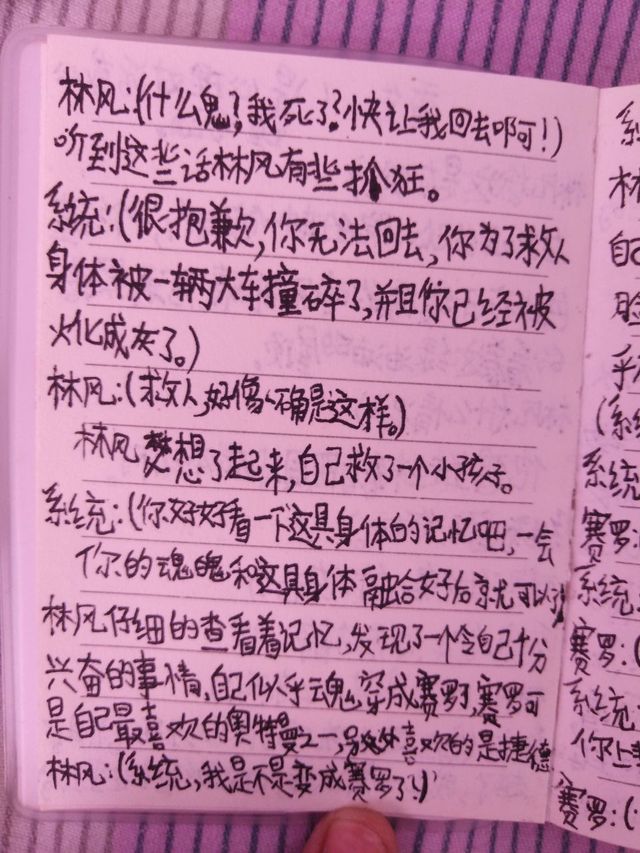 林风:(什么鬼?我死了?快让我回去啊!)
听到这些话林风有些抓狂。
系统:(很抱歉,你无法回去,你为了救人
身体被一辆大车撞碎了,并且你已经被
火化成灰了。)
林风:(救人,好像确是这样。)
林风 想了起来,自己救了一个小孩子。
系统:(你好好看一下这具身体的记忆吧,一会
你的魂魄和这具身体融合好后就可以
林风仔细的查看着记忆,发现了一个令自己十分
兴奋的事情,自己似乎魂穿成赛罗了,赛罗可
是自己最喜欢的奥特曼之一,另外喜欢的是捷德
林风:(系统,我是不是变成赛罗了!)
系
林
自己
脸
乎
(系
系统
赛罗:
系统
赛罗:(
系统
你上
赛罗:(